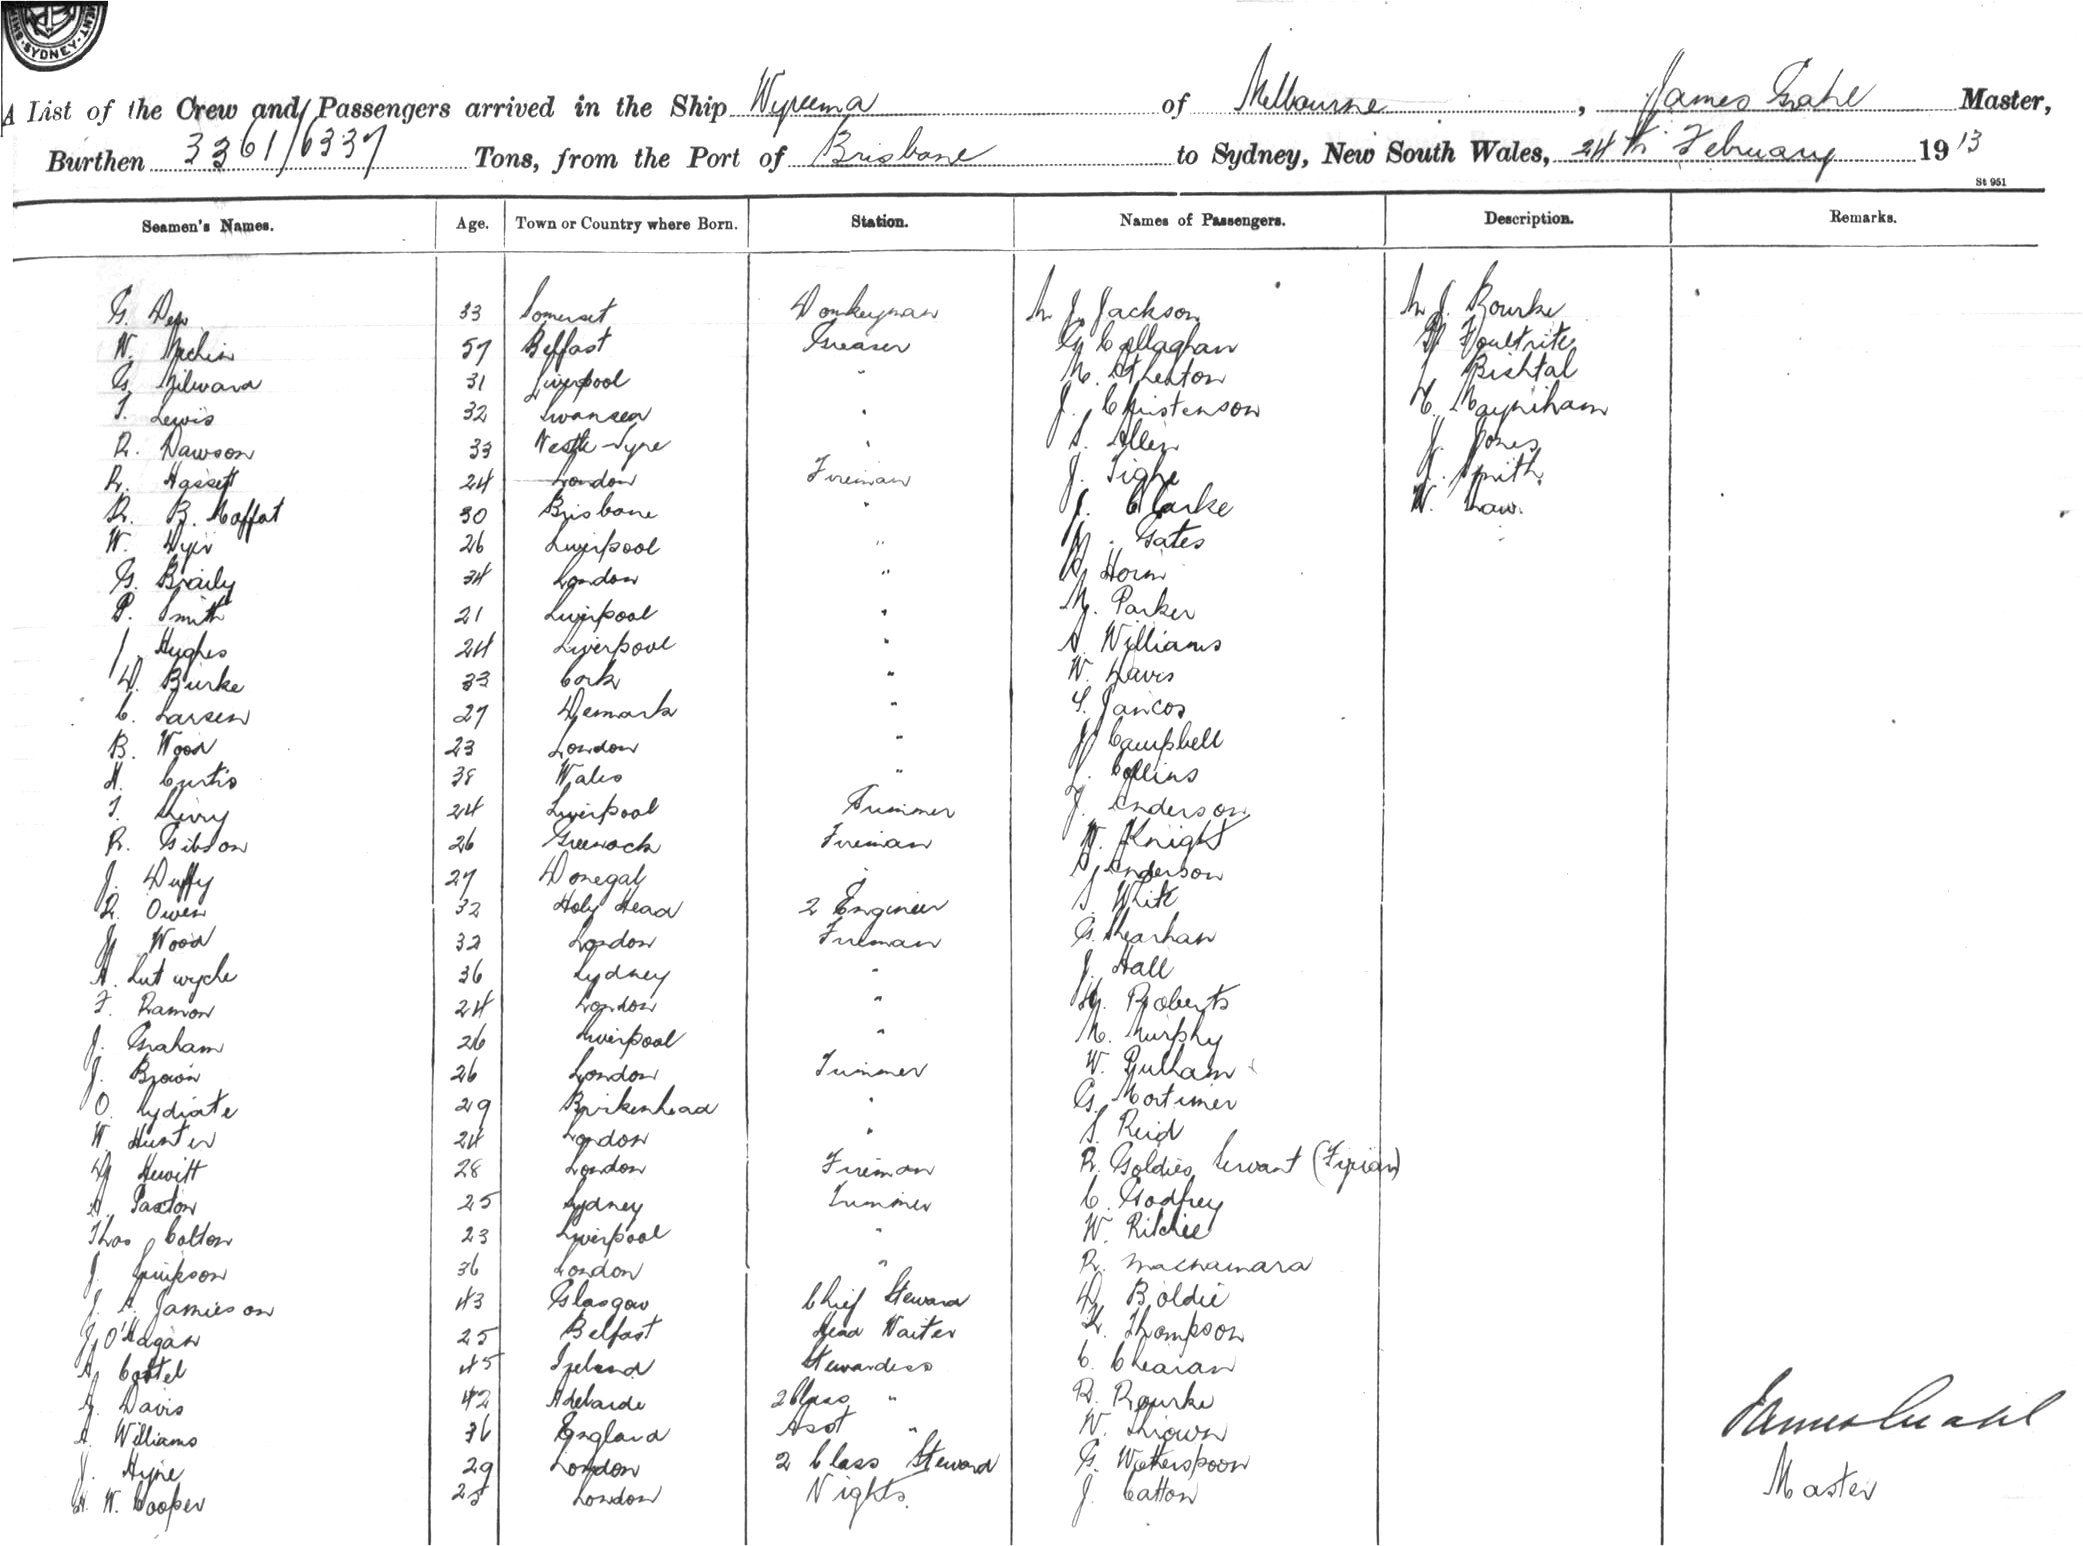 SYDNEY
A List of the Crew and Passengers arrived in the Ship Wyreema of Melbourne, James Grahl Master,
Burthen 3361/6337 Tons, from the Port of Brisbane to Sydney, New South Wales, 24th February 1913
St 951
Seamen's Names. Age. Town or Country where Born. Station. Names of Passengers. Description. Remarks.
G. Dew 33 Somerset Donkeyman M J. Jackson M J. Rourke
W. Machin 57 Belfast Greaser G Callaghan
G. Milward 31 Liverpool " M. Atherton J Bishtal
T. Lewis 32 Swansea " J. Christenson C. Mayniham
R. Dawson 33 Nestle-Tyne " S. Allen J. Jones
R. Hassett 24 London Fireman J. Tighe J. Smith
R. B. Moffat 30 Brisbane " J. Clarke W. Law.
W. Dyer 26 Liverpool " Gates
G. Braily 34 London " Horn
P. Smith 21 Liverpool " M. Parker
J. Hughes 24 Liverpool " A Williams
D. Burke 33 Cork " W. Davis
C. Larsen 27 Demark " S. Jancos
B. Wood 23 London " J Campbell
H. Curtis 38 Wales " J. Collins
T. Livry 24 Liverpool Trimmer J. Anderson
R. Gibson 26 Greenock Fireman W. Knight
J. Duffy 27 Donegal " Anderson
R. Owen 32 Holy Head 2 Engineer S. White
J Wood 32 London Fireman G. Shearhan
A. Lutwyche 36 Sydney " J. Hall
F. Ramon 24 London " Roberts
J. Graham 26 Liverpool " M. Murphy
J. Brown 26 London Trimmer W. Pulham
O. Lydiate 29 Birkenhead " G. Mortimer
W. Hunter 24 London " S. Reid
Hewitt 28 London Fireman R. Goldies Servant (Fijian)
A. Paxton 25 Sydney Trimmer C. Godfrey
Thos Colton 23 Liverpool " W. Ritchie
J. Simpson 36 London " R. Macnamara
J. A. Jamieson 43 Glasgow Chief Steward D Boldie
J O'Hagan 25 Belfast Head Waiter Thompson
A Costel 45 Ireland Stewardess C. Chearan
G. Davis 42 Adelaide 2 Class " R. Rourke
A. Williams 36 England Asst " W. Thrown
J. Hyne 29 London 2 Class Steward G. Wotherspoon
H. W. Cooper 25 London Nights. J. Catton
James Grahl
Master